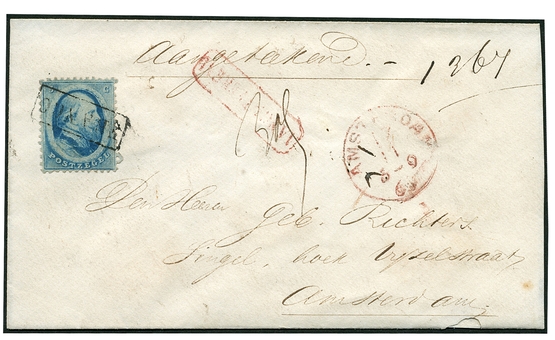 Aangeteekend. - 1367
FRANCO
POSTZEGEL
AMSTERDAM
Den Heer Geb. Richters
Singel, hoek Vijzelstraat
Amsterdam.